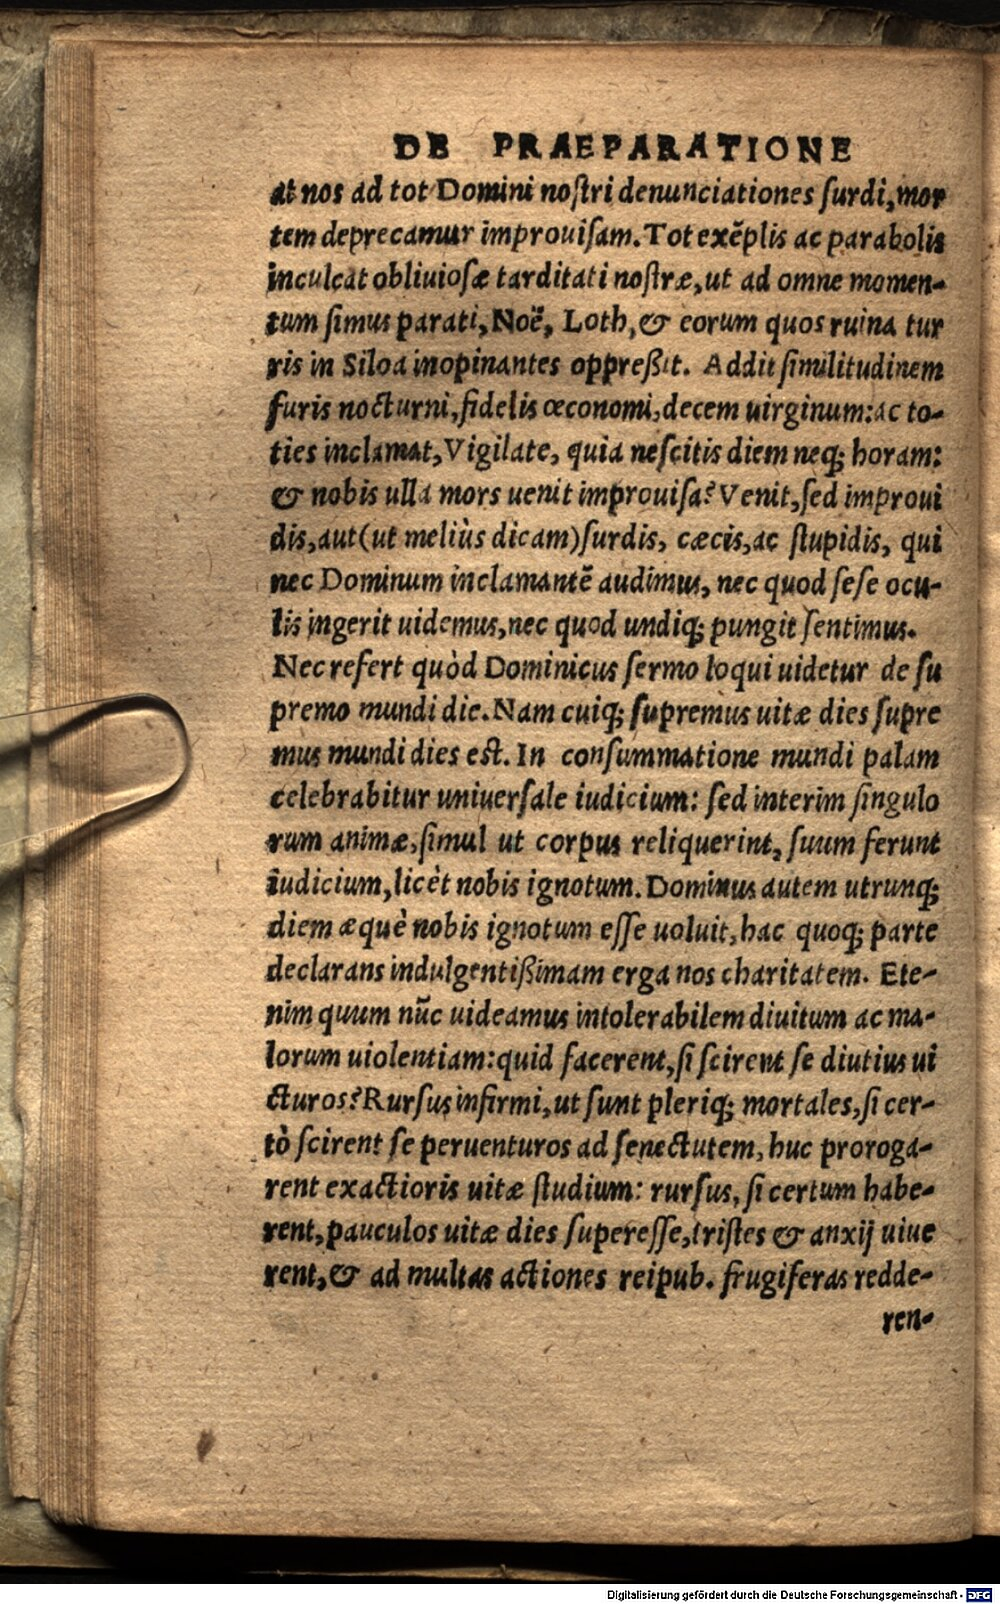 DE PRAEPARATIONE
at nos ad tot Domini nostri denunciationes surdi, mor
tem deprecamur improuisam. Tot exẽplis ac parabolis
inculcat obliuiosæ tarditati nostræ, ut ad omne momen-
tum simus parati, Noë, Loth, & eorum quos ruina tur
ris in Siloa inopinantes oppreßit. Addit similitudinem
furis nocturni, fidelis œconomi, decem uirginum: ac to-
ties inclamat, Vigilate, quia nescitis diem neq; horam:
& nobis ulla mors uenit improuisa? Venit, sed improui
dis, aut (ut meliùs dicam) surdis, cæcis, ac stupidis, qui
nec Dominum inclamantẽ audimus, nec quod sese ocu-
lis ingerit uidemus, nec quod undiq; pungit sentimus.
Nec refert quòd Dominicus sermo loqui uidetur de su
premo mundi die. Nam cuiq; supremus uitæ dies supre
mus mundi dies est. In consummatione mundi palam
celebrabitur uniuersale iudicium: sed interim singulo
rum animæ, simul ut corpus reliquerint, suum ferunt
iudicium, licèt nobis ignotum. Dominus autem utrunq;
diem æquè nobis ignotum esse uoluit, hac quoq; parte
declarans indulgentißimam erga nos charitatem. Ete-
nim quum nũc uideamus intolerabilem diuitum ac ma-
lorum uiolentiam: quid facerent, si scirent se diutius ui
cturos? Rursus infirmi, ut sunt pleriq; mortales, si cer-
tò scirent se peruenturos ad senectutem, huc proroga-
rent exactioris uitæ studium: rursus, si certum habe-
rent, pauculos uitæ dies superesse, tristes & anxij uiue
rent, & ad multas actiones reipub. frugiferas redde-
ren-
Digitalisierung gefördert durch die Deutsche Forschungsgemeinschaft - DFG